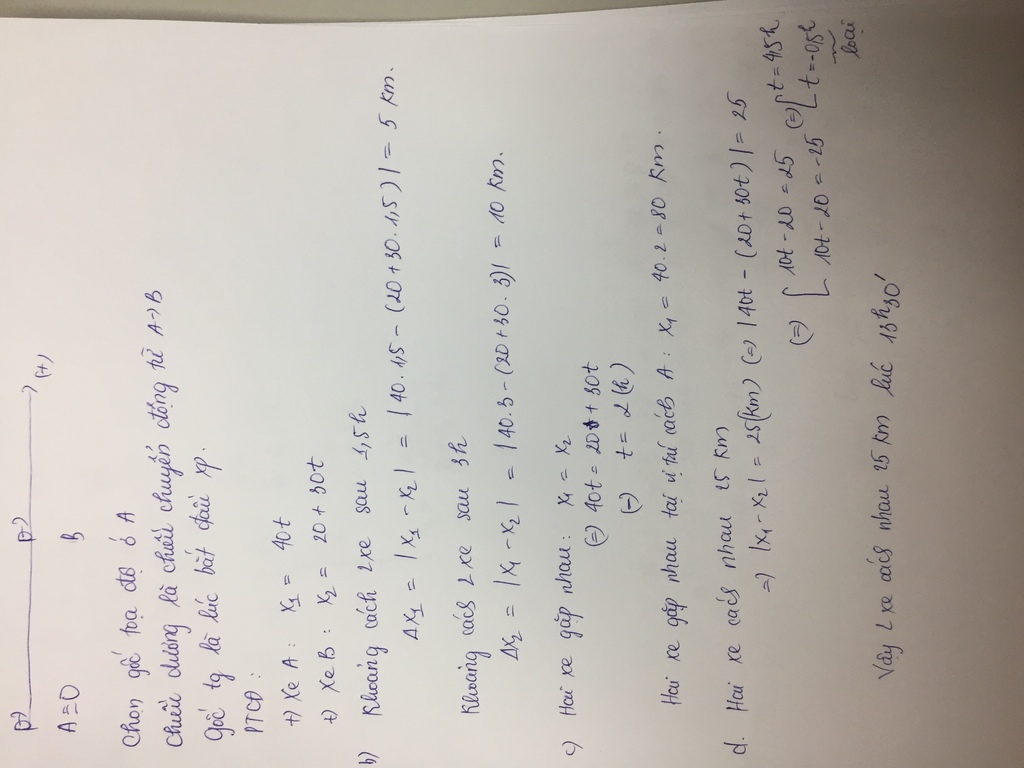 A≡O B (+)
Chọn gốc toạ độ ở A
Chiều dương là chiều chuyển động từ A→B
Gốc tg là lúc bắt đầu xp.
PTCĐ:
+) Xe A: x₁ = 40t
+) Xe B: x₂ = 20+30t
b) Khoảng cách 2 xe sau 1,5h
Δx₁ = |x₁ - x₂| = |40.1,5 - (20+30.1,5)| = 5 km.
Khoảng cách 2 xe sau 3h
Δx₂ = |x₁ - x₂| = |40.3 - (20+30.3)| = 10 km.
c) Hai xe gặp nhau: x₁ = x₂
(=) 40t = 20 + 30t
(=) t = 2(h)
Hai xe gặp nhau tại vị trí cách A: x₁ = 40.2 = 80 km.
d. Hai xe cách nhau 25 km
=) |x₁ - x₂| = 25(km) (=) |40t - (20+30t)| = 25
(=) [ 10t - 20 = 25 (=) [ t = 4,5h
10t - 20 = -25 t = -0,5h
loại
Vậy 2 xe cách nhau 25 km lúc 13h30'